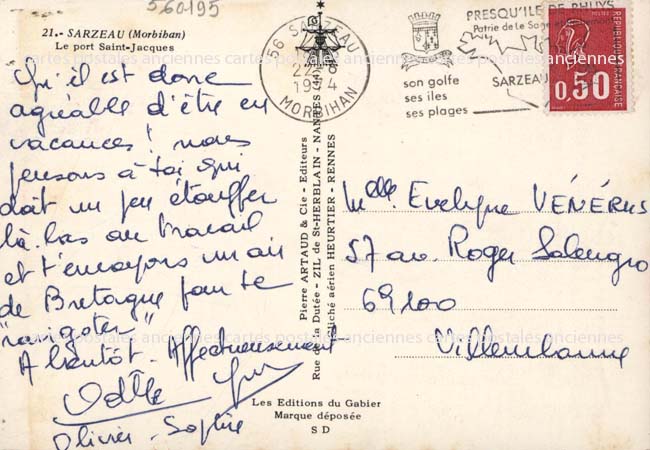 560195
21.- SARZEAU (Morbihan)
Le port Saint-Jacques
Qu'il est donc
agréable d'être en
vacances! nous
pensons à toi qui
doit un peu étouffer
là-bas au travail
et t'envoyons un air
de Bretagne pour te
"ravigoter"
A bientôt. Affectueusement
Odile
Olivier - Sophie
56 SARZEAU
22-8
1974
MORBIHAN
PRESQU'ILE DE RHUYS
Patrie de Le Sage
son golfe
ses iles
ses plages
SARZEAU
REPUBLIQUE FRANÇAISE
0,50
Pierre ARTAUD & Cie - Editeurs
Rue de la Dutée - ZIL de St-HERBLAIN - NANTES (44)
Cliché aérien HEURTIER - RENNES
Mlle Evelyne VÉNÉRUS
57 av. Roger Salengro
69100
Villeurbanne
Les Editions du Gabier
Marque déposée
S D
cartes postales anciennes cartes postales anciennes cartes postales anciennes
cartes postales anciennes cartes postales anciennes cartes postales anciennes